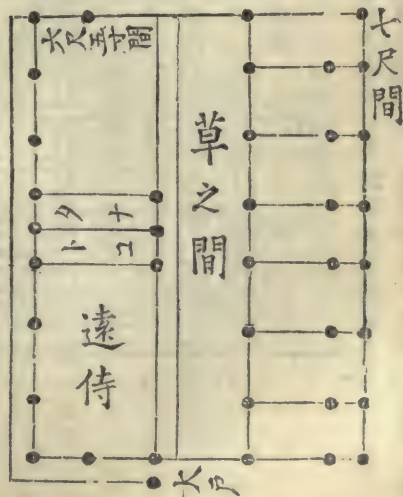 七尺間
草之間
六尺五寸間
タナ
トコ
遠侍
大戸